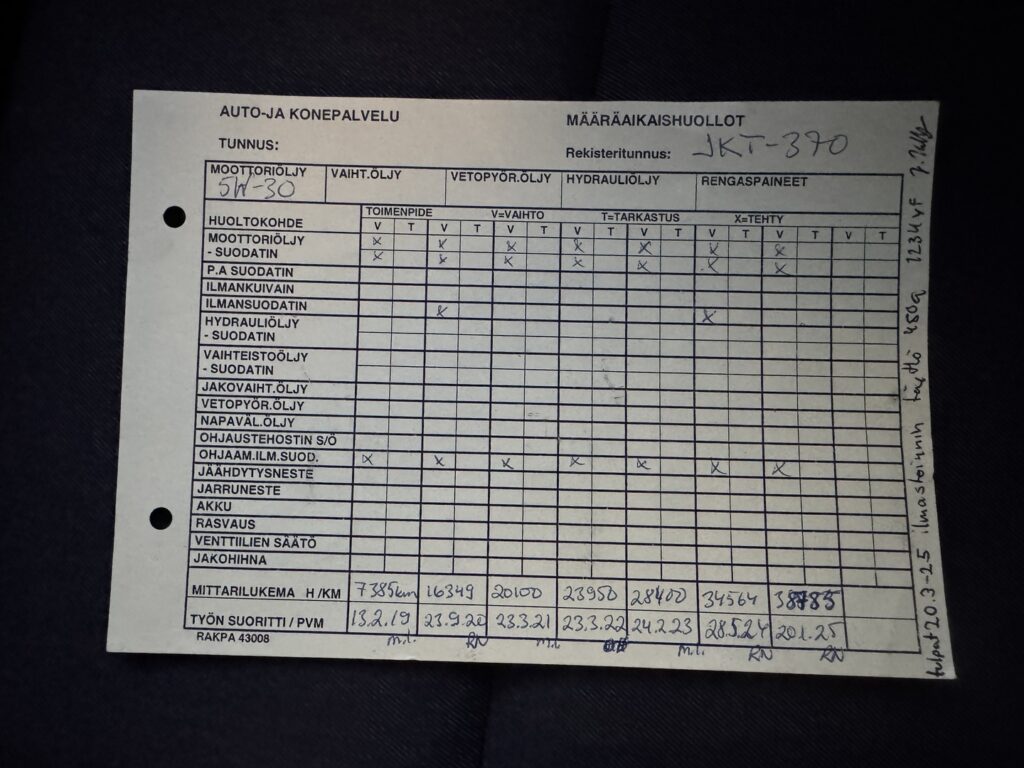 AUTO-JA KONEPALVELU
MÄÄRÄAIKAISHUOLLOT
TUNNUS:
Rekisteritunnus: JKT-370
MOOTTORIÖLJY VAIHT.ÖLJY VETOPYÖR.ÖLJY HYDRAULIÖLJY RENGASPAINEET
5W-30
TOIMENPIDE V=VAIHTO T=TARKASTUS X=TEHTY
HUOLTOKOHDE V T V T V T V T V T V T V T V T
MOOTTORIÖLJY x x x x x x x
- SUODATIN x x x x x x x
P.A SUODATIN
ILMANKUIVAIN
ILMANSUODATIN x x
HYDRAULIÖLJY
- SUODATIN
VAIHTEISTOÖLJY
- SUODATIN
JAKOVAIHT.ÖLJY
VETOPYÖR.ÖLJY
NAPAVÄL.ÖLJY
OHJAUSTEHOSTIN S/Ö
OHJAAM.ILM.SUOD. x x x x x x x
JÄÄHDYTYSNESTE
JARRUNESTE
AKKU
RASVAUS
VENTTIILIEN SÄÄTÖ
JAKOHIHNA
MITTARILUKEMA H /KM 7385km 16349 20100 23950 28400 34564 38785
TYÖN SUORITTI / PVM 13.2.19 23.9.20 23.3.21 23.3.22 24.2.23 28.5.24 20.1.25
RAKPA 43008 m.l. RN m.l. m.l. RN RN
tulpat 20.3-25 ilmastoinnin täyttö 450g 1234yF